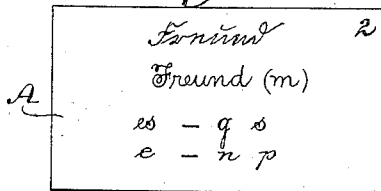 Freund 2
Freund (m)
A
es – g s
e – n p